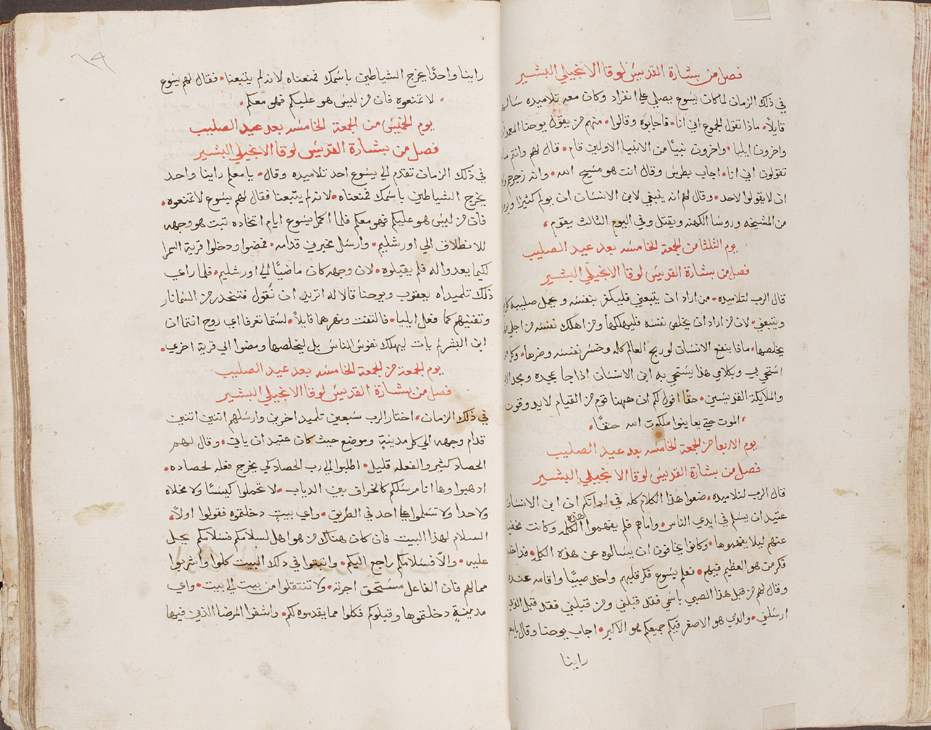 فصل من بشارة القديس لوقا الانجيلي البشير
في ذلك الزمان لما كان يسوع يصلي على انفراد وكان معه تلاميذه
قايلاً ماذا تقول الجموع اني انا فاجابوه وقالوا منهم من يقول يوحنا
واخرون ايليا واخرون نبيا من الانبيا الاولين قام قال لهم وانتم
تقولون اني انا اجاب بطرس وقال انت هو مسيح الله وانه زجرهم
ان لا يقولوا لاحد وقال لهم انه ينبغي لابن الانسان ان يولم كثيرًا
من المشيخه وروسا الكهنه ويقتل وفي اليوم الثالث يقوم
يوم الثلثا من الجمعة الخامسه بعد عيد الصليب
فصل من بشارة القديس لوقا الانجيلي البشير
قال الرب لتلاميذه من اراد ان يتبعني فليكفر بنفسه ويحمل صليبه
ويتبعني لان من اراد ان يخلص نفسه فليهلكها ومن اهلك نفسه من اجلي
يخلصها ماذا ينفع الانسان لو ربح العالم كله وخسر نفسه وضرها
استحي بي وبكلامي هذا يستحي به ابن الانسان اذا جا بمجده ومجد
والملايكة القديسين حقًا اقول لكم ان ههنا قوم من القيام لا يذوقون
الموت حتى يعاينوا ملكوت الله حقًا
يوم الاربعا من الجمعة الخامسه بعد عيد الصليب
فصل من بشارة القديس لوقا الانجيلي البشير
قال الرب لتلاميذه ضعوا هذا الكلام كله في اذانكم ان ابن الانسان
عتيد ان يسلم في ايدي الناس وامام فلم يفهموا هذه الكلمه وكانت
عنهم ليلا يفهموها وكانوا يخافون ان يسالوه عن هذه الكلمه
فكر من هو العظيم فيهم فعلم يسوع فكر قلبهم واخذ صبيًا واقامه عنده
وقال لهم من قبل هذا الصبي باسمي فقد قبلني ومن قبلني فقد قبل الذي
ارسلني والذي هو الاصغر فيكم جميعكم هو الاكبر اجاب يوحنا وقال
راينا
راينا واحدًا يخرج الشياطين باسمك فمنعناه لانه لم يتبعنا فقال لهم يسوع
لا تمنعوه فان من ليس هو عليكم فهو معكم
يوم الخميس من الجمعة الخامسه بعد عيد الصليب
فصل من بشارة القديس لوقا الانجيلي البشير
في ذلك الزمان تقدم الي يسوع احد تلاميذه وقال يا معلم راينا واحد
يخرج الشياطين باسمك فمنعناه لانه لم يتبعنا فقال لهم يسوع لا تمنعوه
فان من ليس هو عليكم فهو معكم فلما اكمل يسوع ايام اتخاده ثبت هو وجهه
للانطلاق الي اورشليم وارسل مخبرين قدامه فمضوا ودخلوا قرية السمرا
لكيما يعدوا له فلم يقبلوه لان وجهه كان ماضيًا الي اورشليم فلما راي
ذلك تلميذاه يعقوب ويوحنا قالا له اتريد ان نقول فتنحدر من السما نار
وتفنيهم كما فعل ايليا فالتفت ونهرهما قايلاً لستما تعرفا اي روح انتما ان
ابن البشر لم يات ليهلك نفوس الناس بل ليخلصها ومضوا الي قرية اخري
يوم الجمعة من الجمعة الخامسه بعد عيد الصليب
فصل من بشارة القديس لوقا الانجيلي البشير
في ذلك الزمان اختار الرب سبعين تلميد اخرين وارسلهم اتنين اتنين
قدام وجهه الي كل مدينة وموضع حيث كان عتيد ان ياتي وقال لهم
الحصاد كثير والفعله قليل اطلبوا الي رب الحصاد كي يخرج فعله لحصاده
ادهبوا وها انا مرسلكم كالخراف بين الدياب لا تحملوا كيسًا ولا مخلاه
ولا حدا ولا تسلموا علي احد في الطريق واي بيت دخلتموه فقولوا اولاً
السلام لهذا البيت فان كان هناك من هو اهل لسلامكم فسلامكم يحل
عليه والا فسلامكم راجع اليكم وانبقوا في ذلك البيت كلوا واشربوا
مما لهم فان الفاعل مستحق اجرته ولا تنتقلوا من بيت الي بيت واي
مدينة دخلتموها وقبلوكم فكلوا مما يقدموه لكم واشفوا المرضا الذين فيها